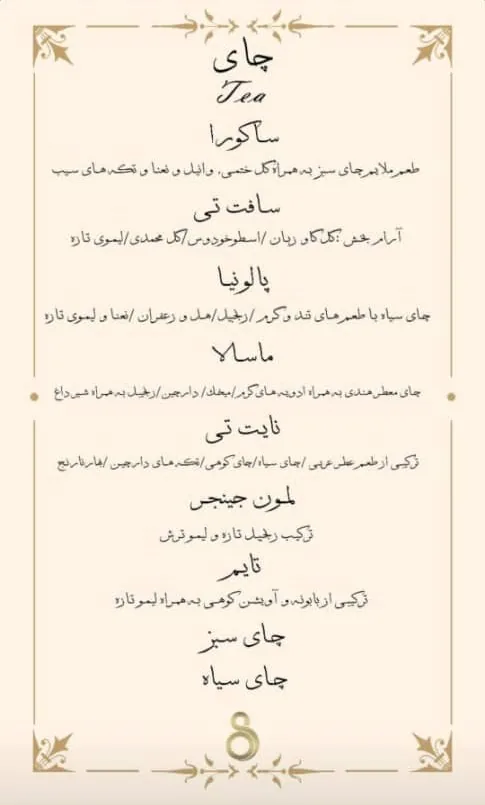 چای
Tea
ساکورا
طعم ملایم چای سبز به همراه گل ختمی، وانیل و نعنا و تکه های سیب
سافت تی
آرام بخش :گل گاو زبان /اسطوخودوس/گل محمدی/لیموی تازه
پالونیا
چای سیاه با طعم های تند و گرم /زنجبیل/هل و زعفران /نعنا و لیموی تازه
ماسالا
چای معطر هندی به همراه ادویه های گرم/میخک/ دارچین/زنجبیل به همراه شیر داغ
نایت تی
ترکیبی از طعم عطر عربی /چای سیاه/چای کوهی/تکه های دارچین /بهار نارنج
لمون جینجر
ترکیب زنجبیل تازه و لیمو ترش
تایم
ترکیبی از بابونه و آویشن کوهی به همراه لیمو تازه
چای سبز
چای سیاه
8